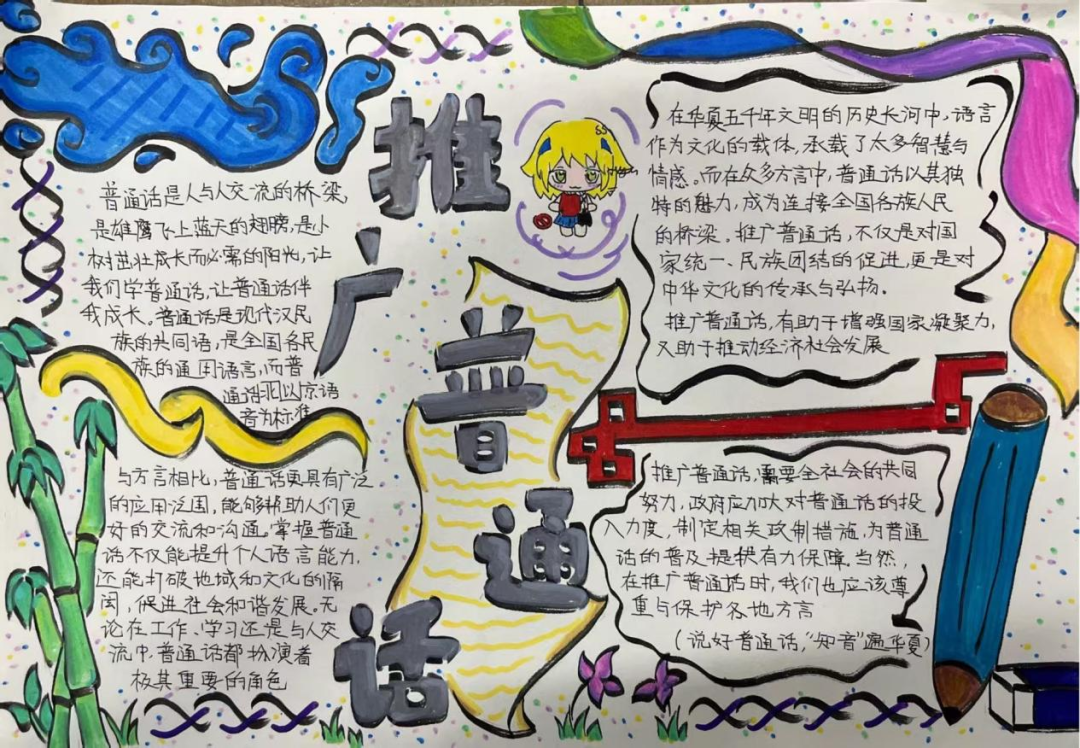 推广普通话
普通话是人与人交流的桥梁,
是雄鹰飞上蓝天的翅膀,是小
树茁壮成长而必需的阳光,让
我们学普通话,让普通话伴
我成长。普通话是现代汉民
族的共同语,是全国各民
族的通用语言,而普
通话北以京语
音为标准
与方言相比,普通话更具有广泛
的应用泛围,能够帮助人们更
好的交流和沟通。掌握普通
话不仅能提升个人语言能力,
还能打破地域和文化的隔
阂,促进社会和谐发展。无
论在工作、学习还是与人交
流中,普通话都扮演着
极其重要的角色
在华夏五千年文明的历史长河中,语言
作为文化的载体,承载了太多智慧与
情感。而在众多方言中,普通话以其独
特的魅力,成为连接全国各族人民
的桥梁。推广普通话,不仅是对国
家统一、民族团结的促进,更是对
中华文化的传承与弘扬.
推广普通话,有助于增强国家凝聚力,
又助于推动经济社会发展
推广普通话,需要全社会的共同
努力,政府应加大对普通话的投
入力度,制定相关政制措施,为普通
话的普及提供有力保障.当然,
在推广普通话时,我们也应该尊
重与保护各地方言
(说好普通话,“知音”遍华夏)